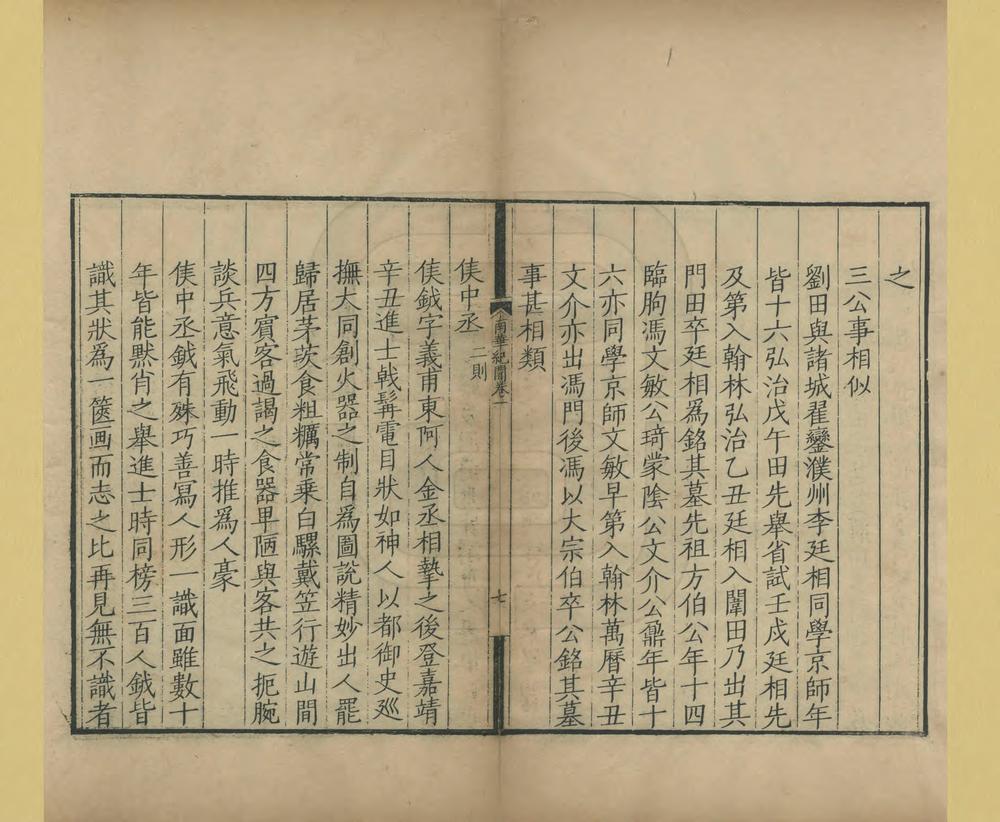 之
三公事相似
劉田與諸城翟鑾濮州李廷相同學京師年
皆十六弘治戊午田先舉省試壬戌廷相先
及第入翰林弘治乙丑廷相入闈田乃出其
門田卒廷相爲銘其墓先祖方伯公年十四
臨朐馮文敏公琦蒙陰公文介公鼐年皆十
六亦同學京師文敏早第入翰林萬曆辛丑
文介亦出馮門後馮以大宗伯卒公銘其墓
事甚相類
南華紀聞卷一
七
侯中丞 二則
侯鉞字義甫東阿人金丞相摯之後登嘉靖
辛丑進士戟髯電目狀如神人以都御史廵
撫大同創火器之制自爲圖說精妙出人罷
歸居茅茨食粗糲常乗白騾戴笠行遊山間
四方賓客過謁之食器卑陋與客共之扼腕
談兵意氣飛動一時推爲人豪
侯中丞鉞有殊巧善寫人形一識面雖數十
年皆能黙肖之舉進士時同榜三百人鉞皆
識其狀爲一箧画而志之比再見無不識者